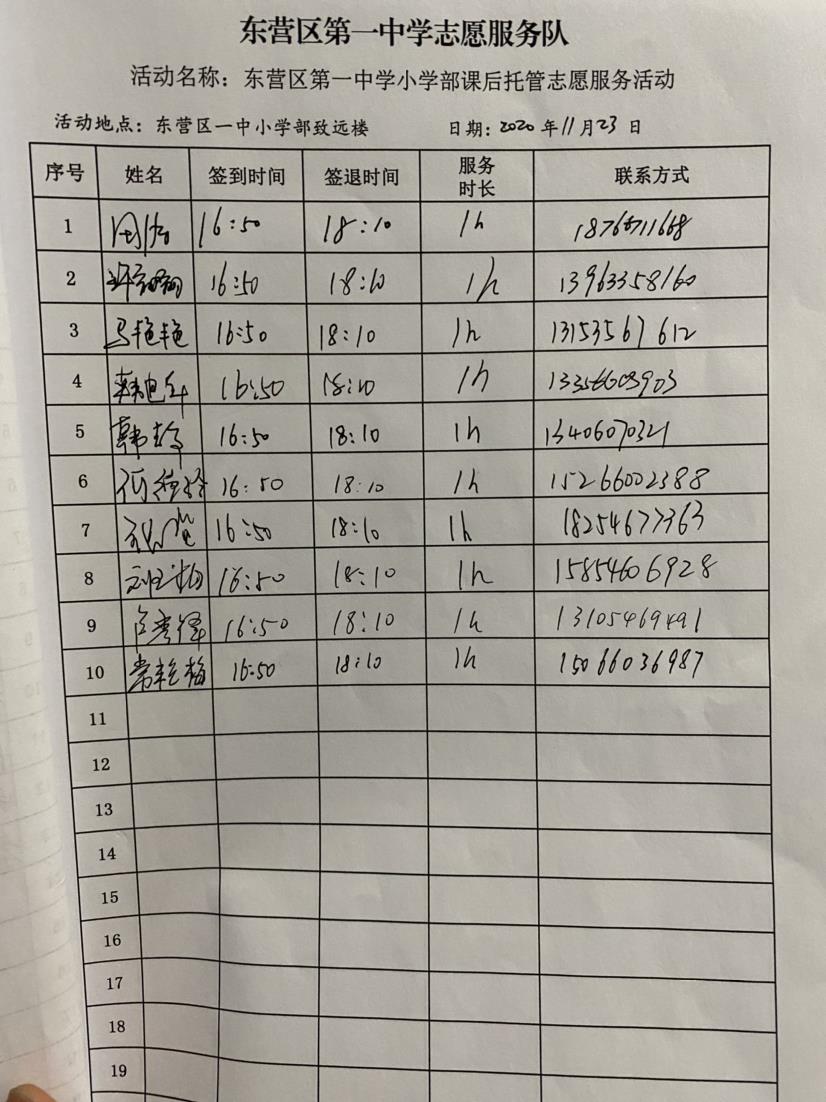 东营区第一中学志愿服务队
活动名称：东营区第一中学小学部课后托管志愿服务活动
活动地点：东营区一中小学部致远楼 日期：2020 年 11 月 23 日
序号 姓名 签到时间 签退时间 服务时长 联系方式
1 16:50 18:10 1h
2 16:50 18:10 1h 13963358160
3 马艳艳 16:50 18:10 1h 13153567612
4 16:50 18:10 1h
5 16:50 18:10 1h 13406070321
6 16:50 18:10 1h 15266002388
7 16:50 18:10 1h
8 16:50 18:10 1h 15854606928
9 16:50 18:10 1h 13105469491
10 常艳梅 16:50 18:10 1h 15066036987
11
12
13
14
15
16
17
18
19